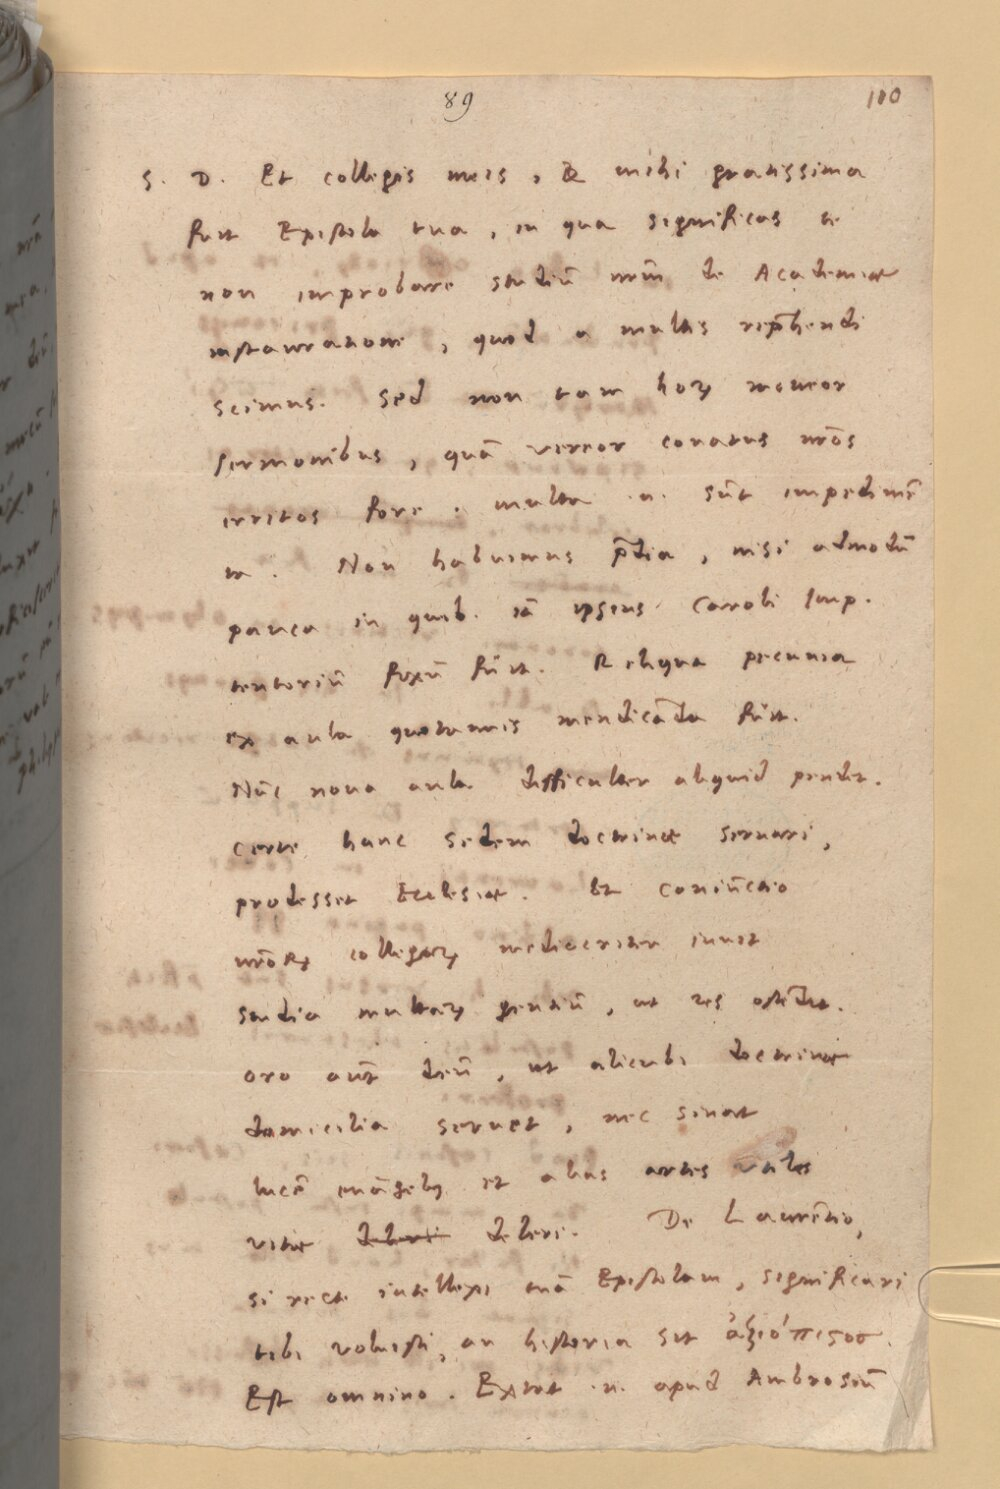 89
110
S. D. Et collegis meis, & mihi gratissima
fuit Epistola tua, in qua significas te
non improbare studiū nrm̄ de Academiae
instauratione, quod a multis rep̄hendi
scimus. Sed non tam horꝝ moueor
sermonibus, quā vereor conatus nrōs
irritos fore. multa .n. sūt impedimē
ta. Non habuimus p̄dia, nisi admodū
pauca in quib. iā ipsius Caroli Imp.
tentoriū fixū fuit. Reliqua pecunia
ex aula quotannis mendicāda fuit.
Nūc noua aula difficulter aliquid pendit.
Certe hanc sedem doctrinae seruari,
prodesset Ecclesiae. Et coniūctio
nrōrꝝ collegarꝝ mediocriter iuuit
studia multarꝝ gentiū, ut res ostēdit.
oro aūt deū, ut alicubi doctrinae
domicilia seruet, nec sinat
lucē euāgelij et alias artes utiles
vitae deleri deleri. De Laurētio,
si recte intellexi tuā Epistolam, significari
tibi voluisti, an historia sit ἀξιόπιςος.
Est omnino. Extat .n. apud Ambrosiū